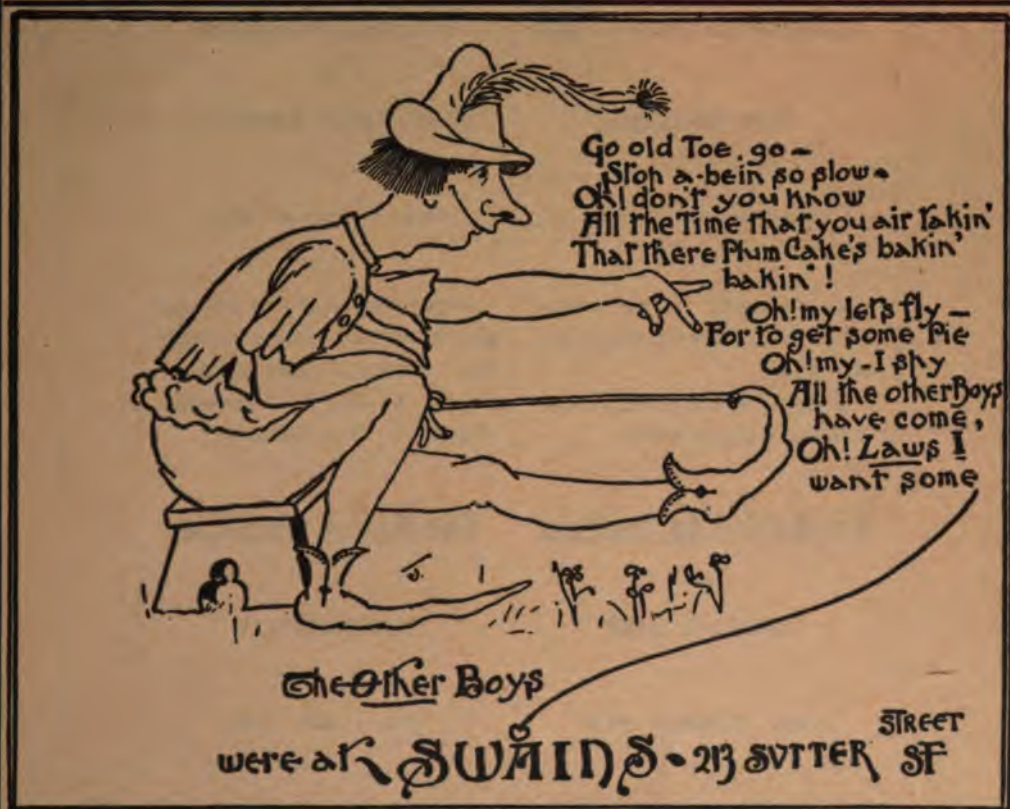 Go old Toe, go –
Stop a-bein so slow –
Oh! don't you know
All the Time that you air takin'
That there Plum Cake's bakin'
bakin'!
Oh! my let's fly –
For to get some Pie
Oh! my - I spy
All the other Boys
have come,
Oh! Laws I
want some
The Other Boys
were at SWAINS • 213 SUTTER STREET SF